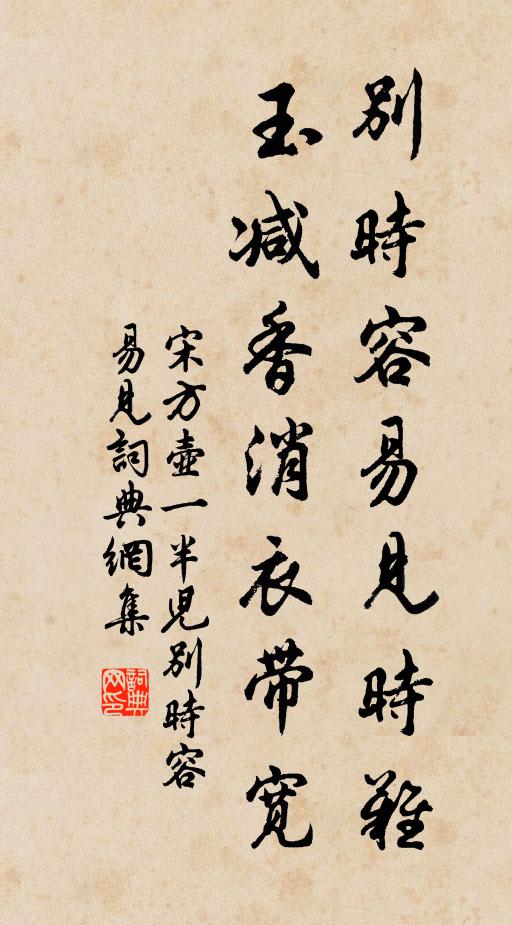 別時容易見時難
玉減香消衣帶寬
宋方壺一半兒別時容
易見詞典網集
詞典
网印